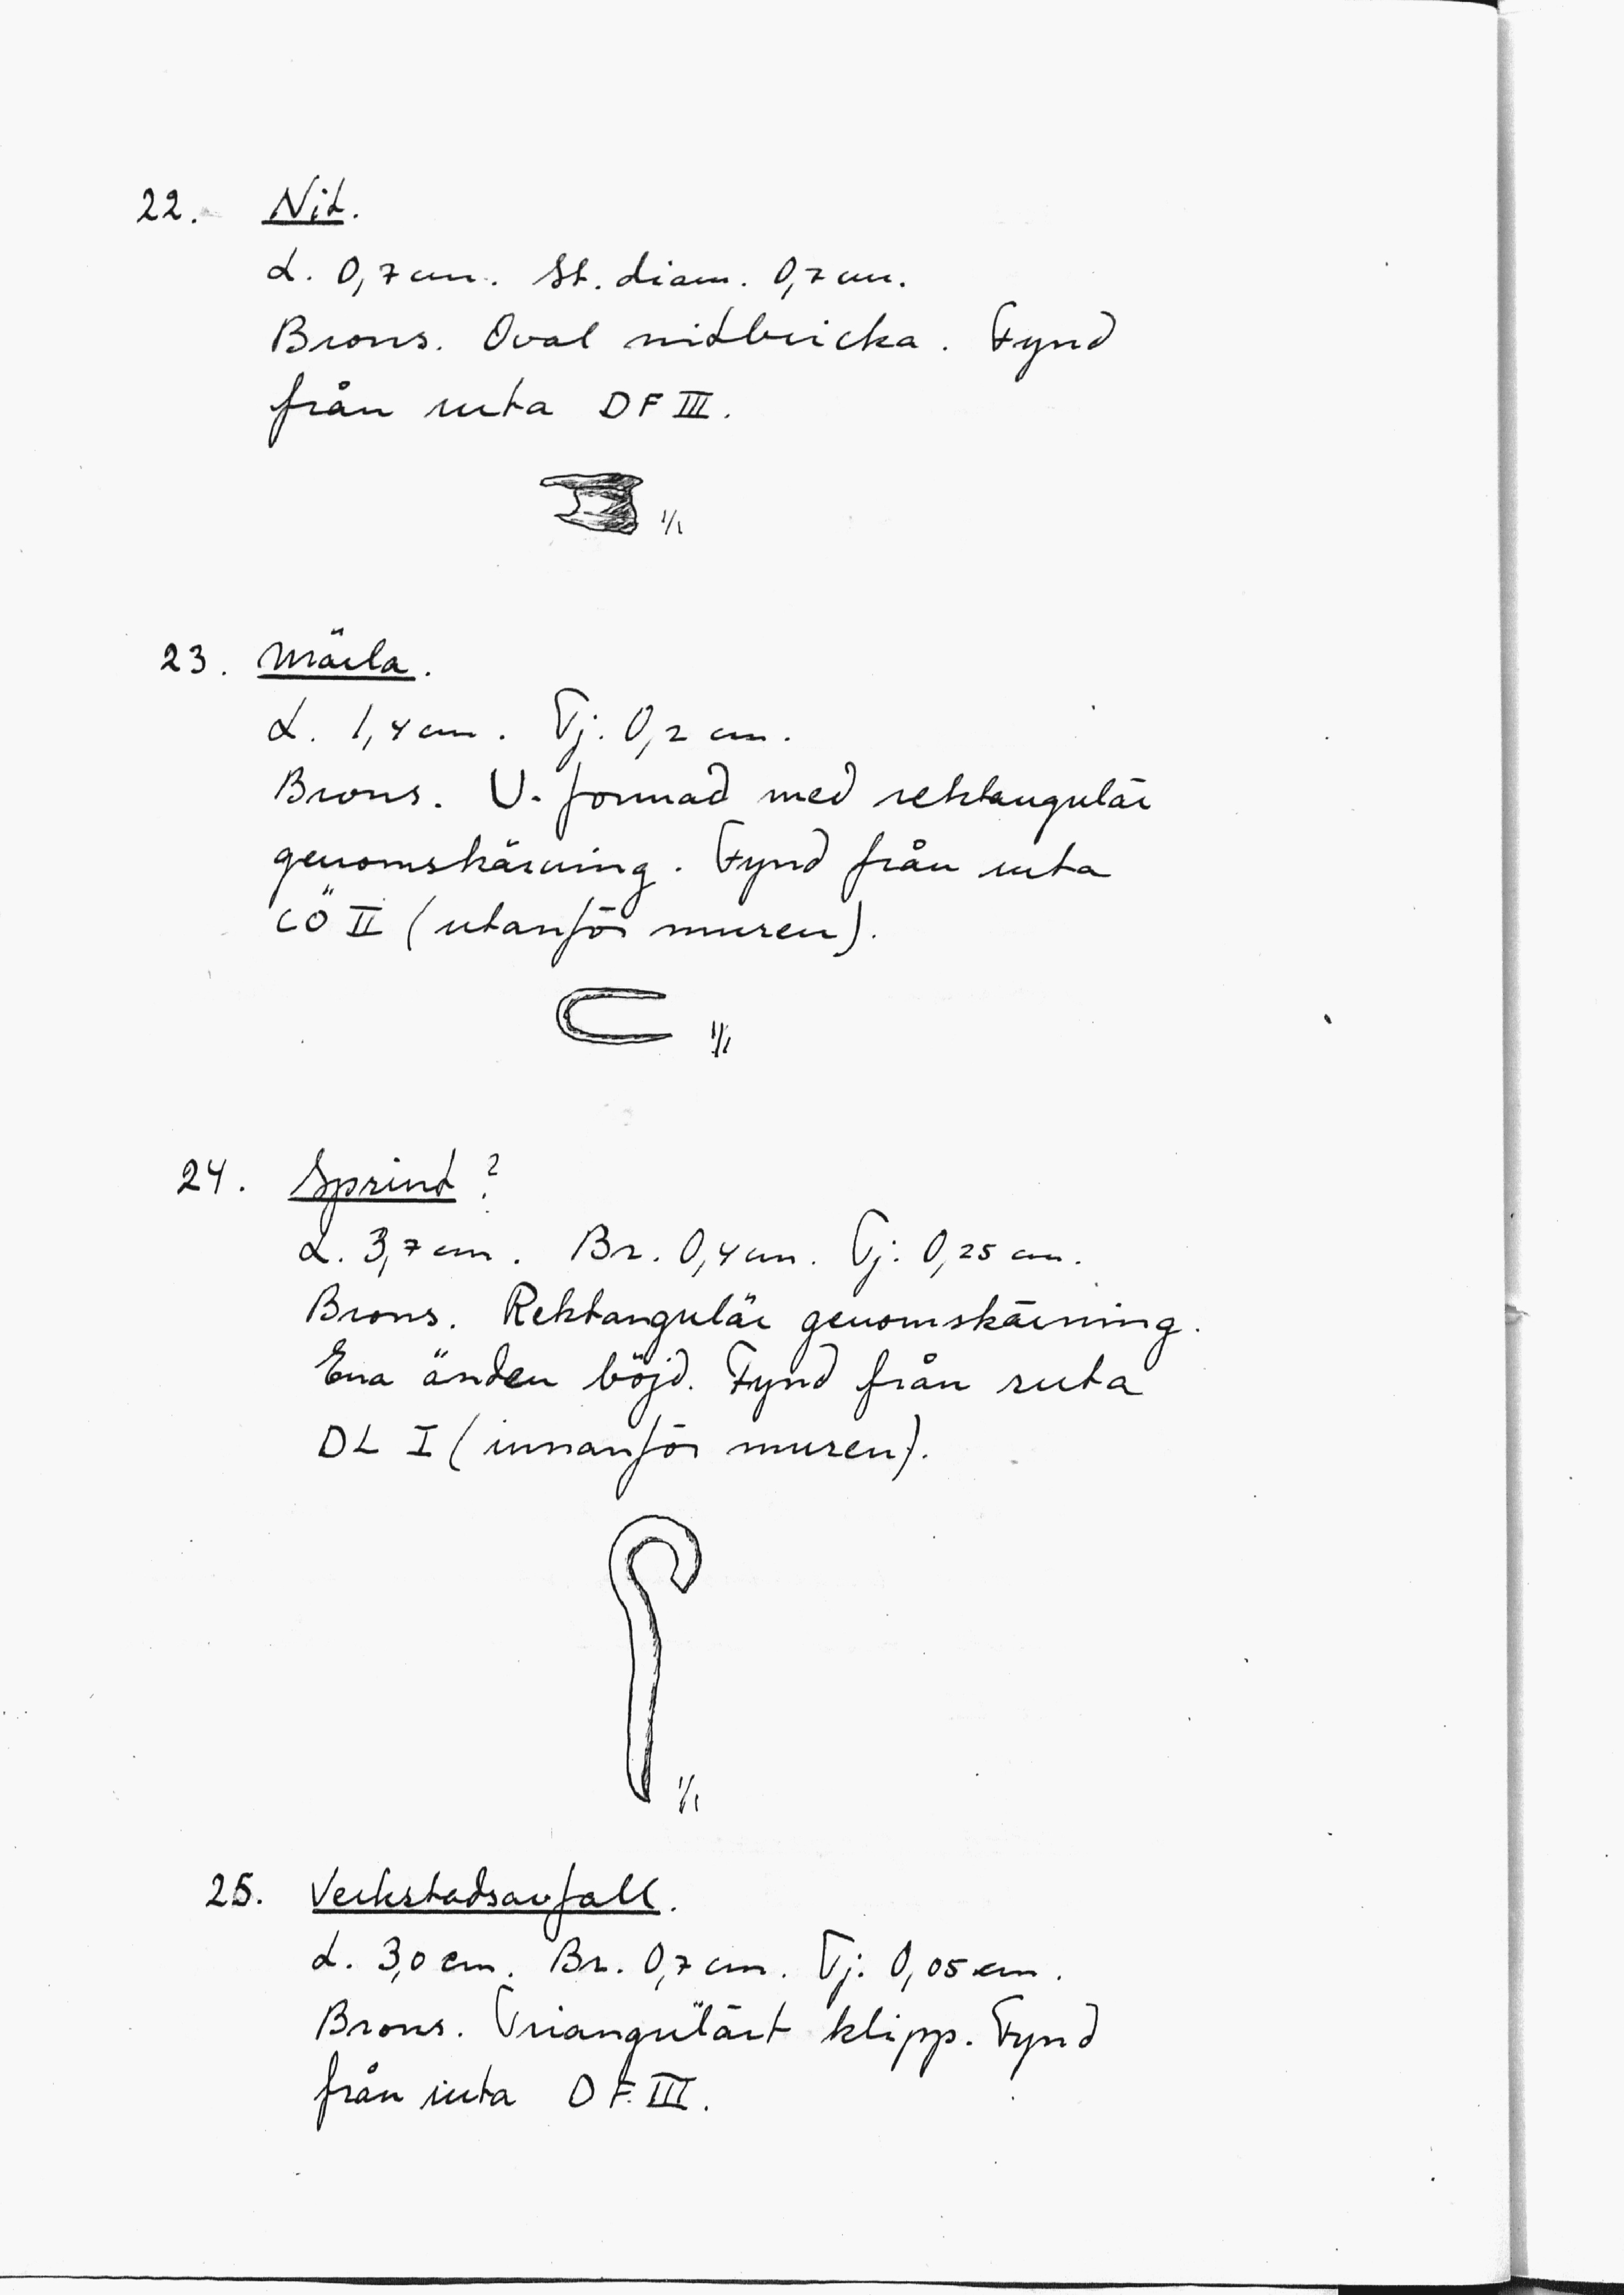 22. Nit.
L. 0,7 cm. St. diam. 0,7 cm.
Brons. Oval nitbricka. Fynd
från ruta DF III.
1/1
23. Märla.
L. 1,4 cm. Tj. 0,2 cm.
Brons. U-formad med rektangulär
genomskärning. Fynd från ruta
CÖ II (utanför muren).
1/1
24. Sprint?
L. 3,7 cm. Br. 0,4 cm. Tj. 0,25 cm.
Brons. Rektangulär genomskärning.
Ena änden böjd. Fynd från ruta
DL I (innanför muren).
1/1
25. Verkstadsavfall.
L. 3,0 cm. Br. 0,7 cm. Tj. 0,05 cm.
Brons. Triangulärt klipp. Fynd
från ruta DF III.